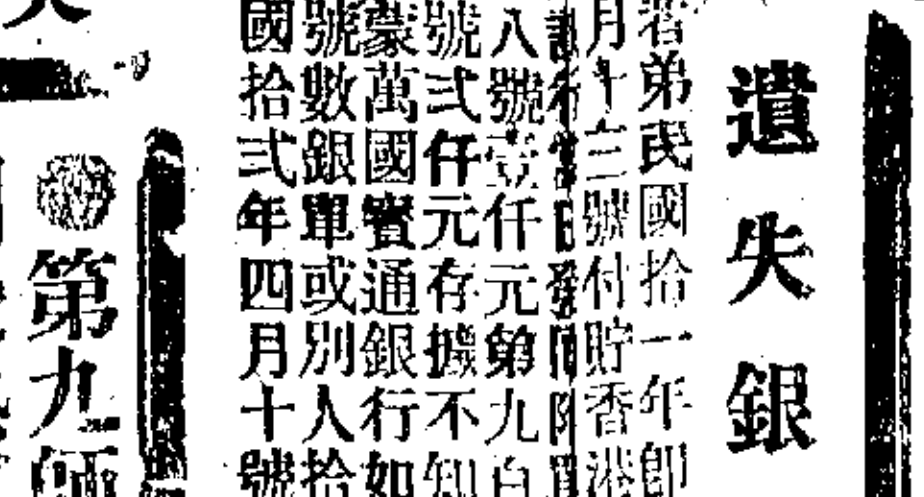 遺失銀
啓弟民國拾一年即
月十三號付貯香港
八號壹仟元第九百
號弍仟元存據不知
蒙萬國寳通銀行如
號數銀單或别人拾
國拾弍年四月十號
第九師